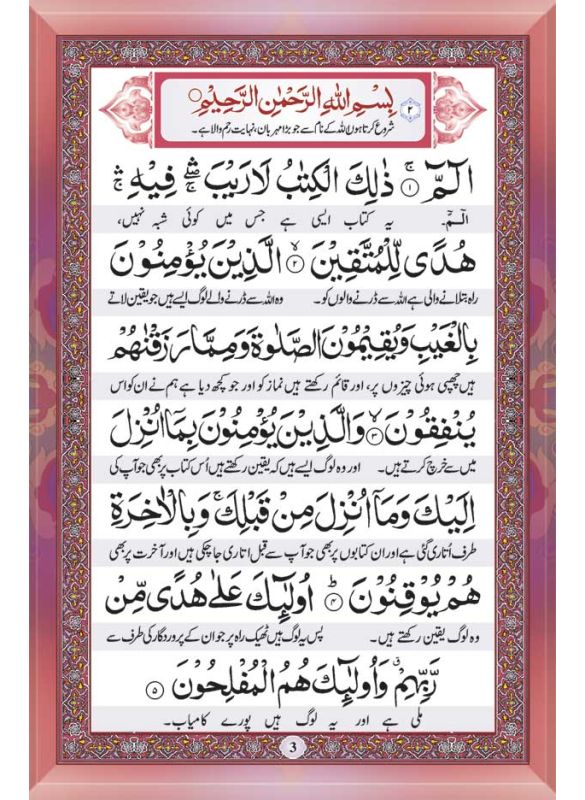 بِسْمِ اللهِ الرَّحْمٰنِ الرَّحِيْمِ ○
۲
شروع کرتا ہوں اللہ کے نام سے جو بڑا مہربان، نہایت رحم والا ہے۔
الٓمّٓ ۚ ۱ ذٰلِكَ الْكِتٰبُ لَا رَيْبَ ۛ ۖ فِيْهِ ۛ ۚ
الٓمّٓ۔ یہ کتاب ایسی ہے جس میں کوئی شبہ نہیں،
هُدًى لِّلْمُتَّقِيْنَ ۙ ۲ الَّذِيْنَ يُؤْمِنُوْنَ
راہ بتلانے والی ہے اللہ سے ڈرنے والوں کو۔ وہ اللہ سے ڈرنے والے لوگ ایسے ہیں جو یقین لاتے
بِالْغَيْبِ وَيُقِيْمُوْنَ الصَّلٰوةَ وَمِمَّا رَزَقْنٰهُمْ
ہیں چھپی ہوئی چیزوں پر، اور قائم رکھتے ہیں نماز کو اور جو کچھ دیا ہے ہم نے ان کو اس
يُنْفِقُوْنَ ۙ ۳ وَالَّذِيْنَ يُؤْمِنُوْنَ بِمَآ اُنْزِلَ
میں سے خرچ کرتے ہیں۔ اور وہ لوگ ایسے ہیں کہ یقین رکھتے ہیں اُس کتاب پر بھی جو آپ کی
اِلَيْكَ وَمَآ اُنْزِلَ مِنْ قَبْلِكَ ۚ وَبِالْاٰخِرَةِ
طرف اُتاری گئی ہے اور ان کتابوں پر بھی جو آپ سے قبل اتاری جا چکی ہیں اور آخرت پر بھی
هُمْ يُوْقِنُوْنَ ؕ ۴ اُولٰٓئِكَ عَلٰى هُدًى مِّنْ
وہ لوگ یقین رکھتے ہیں۔ پس یہ لوگ ہیں ٹھیک راہ پر جو ان کے پروردگار کی طرف سے
رَّبِّهِمْ ۗ وَاُولٰٓئِكَ هُمُ الْمُفْلِحُوْنَ ۵
ملی ہے اور یہ لوگ ہیں پورے کامیاب۔
3